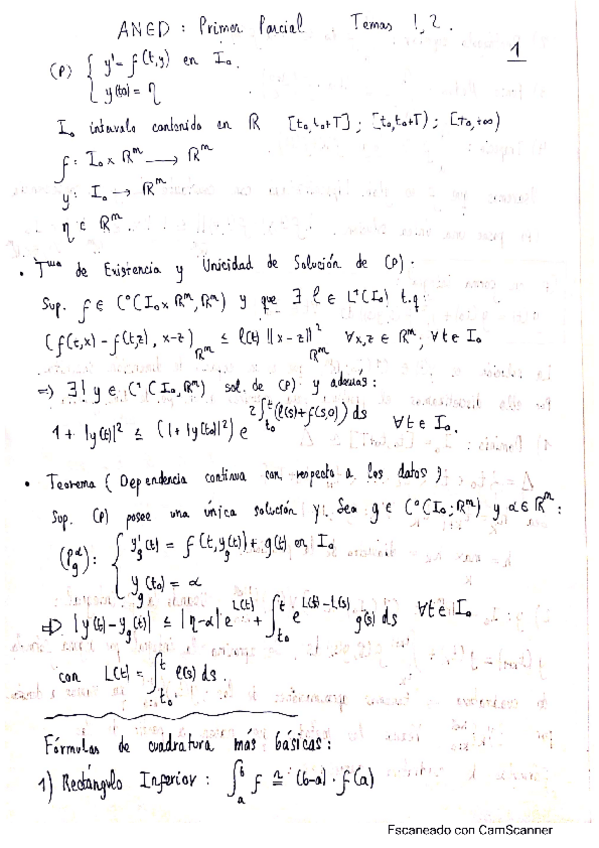 ANED : Primer Parcial Temas 1, 2.
1
(P) { y' = f(t,y) en I₀.
y(t₀) = η
I₀ intervalo contenido en R [t₀,t₀+T] ; [t₀,t₀+T) ; [t₀,+∞)
f: I₀ × Rᵐ ⟶ Rᵐ
y: I₀ → Rᵐ
η ∈ Rᵐ
• Tᵐᵃ de Existencia y Unicidad de Solución de (P).
Sup. f ∈ C⁰(I₀×Rᵐ,Rᵐ) y que ∃ l ∈ L¹(I₀) t.q:
(f(t,x) - f(t,z), x-z)_Rᵐ ≤ l(t) ||x-z||²_Rᵐ ∀x,z ∈ Rᵐ, ∀t ∈ I₀
=> ∃! y ∈ C¹(I₀,Rᵐ) sol. de (P) y además:
1 + |y(t)|² ≤ (1+|y(t₀)|²) e^{2∫_{t₀}^{t}(l(s)+f(s,0)) ds} ∀t ∈ I₀.
• Teorema (Dependencia continua con respecto a los datos)
Sup. (P) posee una única solución y. Sea g ∈ C⁰(I₀;Rᵐ) y α ∈ Rᵐ:
(P_g^α): { y'_g(t) = f(t,y_g(t)) + g(t) en I₀
y_g(t₀) = α
=> |y(t)-y_g(t)| ≤ |η-α| e^{L(t)} + ∫_{t₀}^{t} e^{L(t)-L(s)} g(s) ds ∀t ∈ I₀
con L(t) = ∫_{t₀}^{t} l(s) ds.
Fórmulas de cuadratura más básicas:
1) Rectángulo Inferior : ∫_a^b f ≅ (b-a) · f(a)
Escaneado con CamScanner